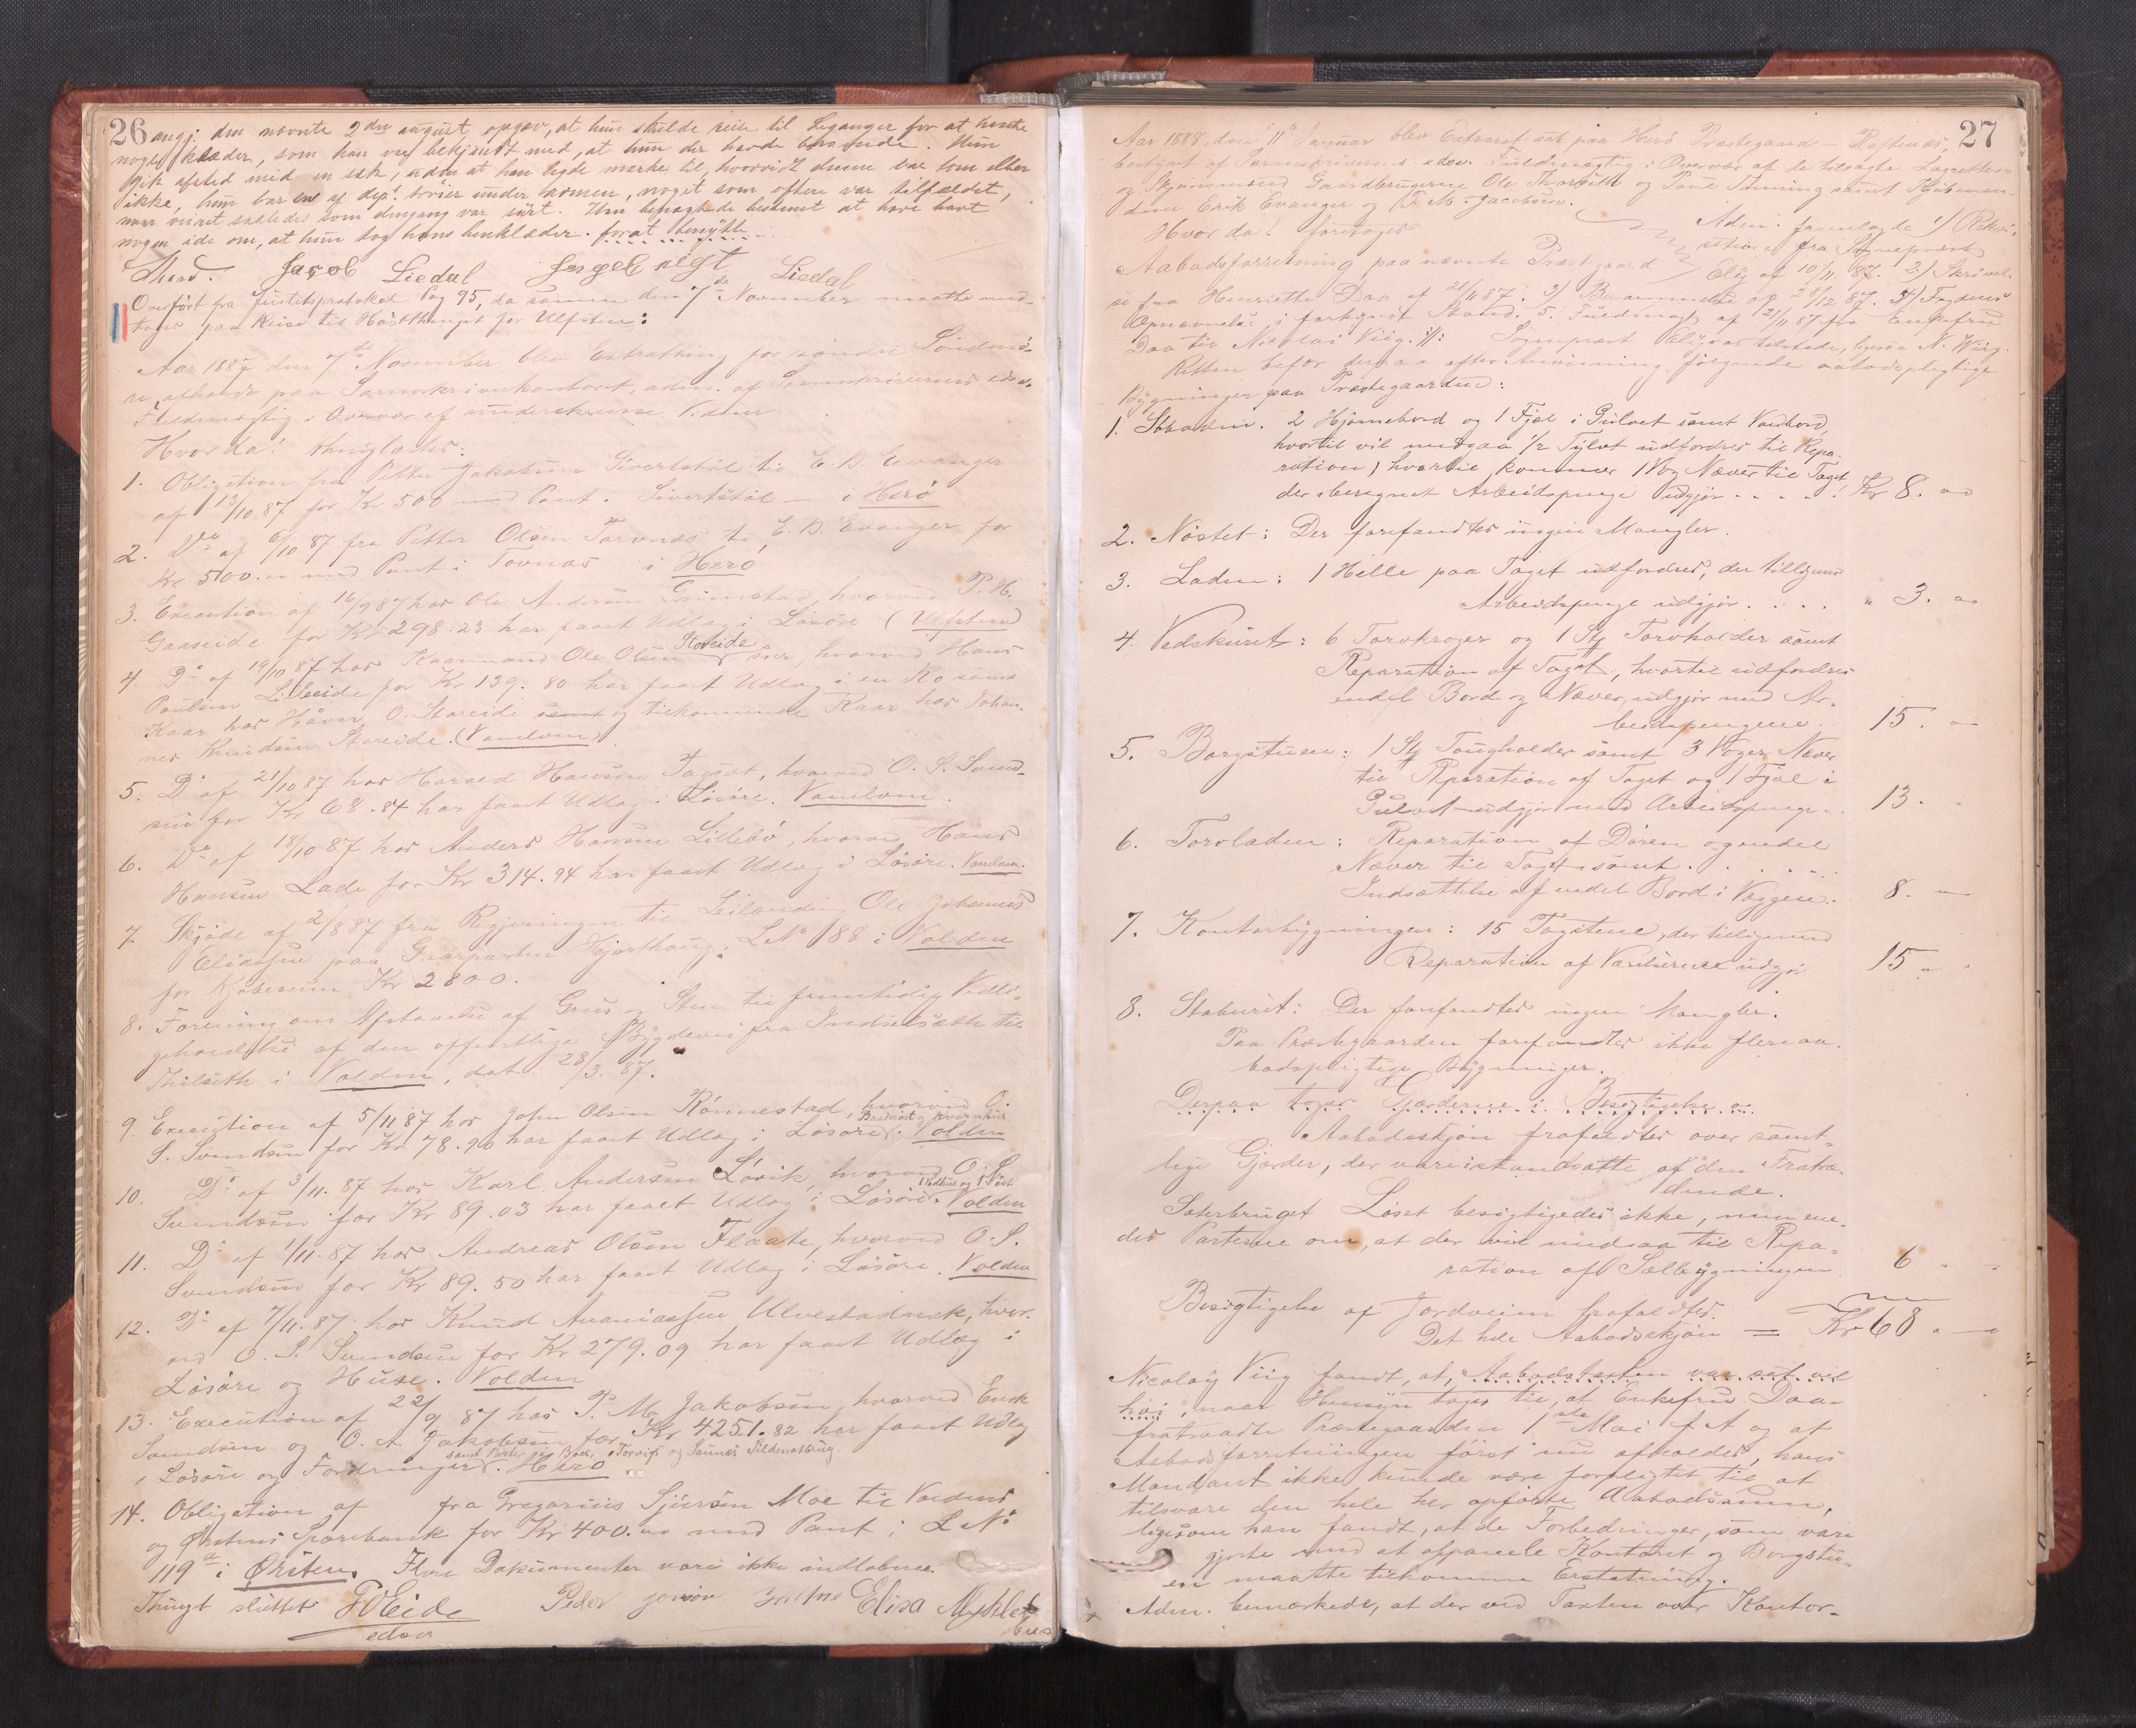 26
angj. den nævnte 2den august opgav, at hun skulde reise til Leganger for at hente
nogle klæder, som han var bekjendt med, at hun der havde beroende. Hun
gik afsted med en sæk, uden at han lagde mærke til, hvorvidt denne var tom eller
ikke, hun bar en af dept. trøier under armen, noget som oftere var tilfældet,
naar veiret saaledes som dengang var surt. Hun benægtede bestemt at have havt
nogen ide om, at hun tog hans benklæder forat benytte
Jacob Liedal Ingebrigt Liedal
Overført fra Justitsprotokol Pag 95, da samme den 7de November maatte med-
tages paa Reise til Høstthinget for Ulfsten:
Aar 1887 den 7de November blev Extrathing for søndre Søndmø-
re afholdt paa Sorenskriverkontoret, adm. af Sorenskriverens edsv.
Fuldmægtig i Overvær af underskrevne Vidner
Hvor da! thinglæstes:
1. Obligation fra Petter Jakobsen Sivertstøl til E. D. Evanger
af 13/10 87 for Kr 500 med Pant i Sivertstøl — i Herø
2. Do af 6/10 87 fra Petter Olsen Torvnæs til E. D. Evanger for
Kr 500.00 med Pant i Tovnæs i Herø
3. Execution af 16/9 87 hos Ole Andersen Grimstad, hvorved P. H.
Gaaseide for Kr 298.23 har faaet Udlæg i Løsøre (Ulfsten)
4. Do af 19/10 87 hos Kaarmand Ole Olsen Storeide, hvorved Hans
Poulsen Lilleeide for Kr 139.80 har faaet Udlæg i en Ko samt
Kaar hos Håvar O. Storeide samt og tilkommende Kaar hos Johan-
nes Knudsen Storeide. (Vanelven)
5. Do af 21/10 87 hos Harald Hansen Aagsæt, hvorved O. S. Svend-
sen for Kr 68.84 har faaet Udlæg i Løsøre. Vanelven.
6. Do af 18/10 87 hos Anders Hansen Lillebø, hvorved Hans
Hansen Lade for Kr 314.94 har faaet Udlæg i Løsøre. Vanelven.
7. Skjøde af 2/8 87 fra Regjeringen til Leilænding Ole Johannes
Eliassen paa Gaarparten Hjorthaug, L No 188 i Volden
for Kjøbesum Kr 2800.
8. Forening om Afstaaelse af Grus og Sten til fremtidig Vedli-
geholdelse af den offentlige Bygdevei fra Indselsæth til
Thilseth i Volden, dat 28/3. 87.
9. Execution af 5/11 87 hos John Olsen Rønnestad, hvorved O.
S. Svendsen for Kr 78.90 har faaet Udlæg i Løsøre. Volden
10. Do af 3/11. 87 hos Karl Andersen Løvik, hvorved O. S.
Svendsen for Kr 89.03 har faaet Udlæg i Løsøre. Volden
11. Do af 1/11. 87 hos Andreas Olsen Flaate, hvorved O. S.
Svendsen for Kr 89.50 har faaet Udlæg i Løsøre. Volden
12. Do af 7/11. 87 hos Knud Ananiassen Ulvestadnak, hvor-
ved O. S. Svendsen for Kr 279.09 har faaet Udlæg i
Løsøre og Huse. Volden
13. Execution af 22/9 87 hos P. M. Jakobsen, hvorved Enok
Svendsen og O. A. Jakobsen for Kr 4251.82 har faaet Udlæg
i Løsøre og Fordringer. Herø
14. Obligation af fra Gregorius Sjursen Moe til Voldens
og Ørstens Sparebank for Kr 400.00 med Pant i L No
119a i Ørsten. Flere Dokumenter vare ikke indløbne.
Thinget sluttet FOEide Peder Elisa Myklebust
edsv
27
Aar 1888, den 11te Januar blev Extraret sat paa Herø Præstegaard — Røttenes,
bestyret af Sorenskriverens edsv. Fuldmægtig i Overvær af de tilsagte Lagrettes-
og Skjønsmænd Gaardbrugerne Ole Thorseth og Poul samt Kjøbmæn-
dene Erik Evanger og P. M. Jacobsen.
Hvor da! foretoges
Aabodsforretning paa nævnte Præstgaard
Adm. fremlagde 1) Rekvi-
sition fra Sognepræst
Elig af 10/11 87. 2) Skrivel-
se fra Henriette Daa af 21/11 87. 3) Berammelse af 28/12 87. 4) Fogdens
Opnævnelse i forkyndt Stand. 5. Fuldmagt af 21/11 87 fra Enkefru
Daa til Nicolai Viig. //: Sognepræst Elig var tilstede, ligesaa N. Viig.
Retten befor derpaa efter Anvisning følgende aabodspligtige
Bygninger paa Præstegaarden:
1. Stoaden. 2 Hjørnebord og 1 Fjæl i Gulvet samt Vandbord,
hvortil vil medgaa 1/2 Tylvt udfordres til Repa-
ration, hvortil kommer 1 Vog Næver til Taget,
der iberegnet Arbeidspenge udgjør . . . . Kr 8. 00
2. Nøstet: Der forefandtes ingen Mangler.
3. Laden: 1 Helle paa Taget udfordres, der tilligemed
Arbeidspenge udgjør . . . . " 3. 00
4. Vedskuret: 6 Torvkroger og 1 Stk Torvholder samt
Reparation af Taget, hvortil udfordres
endel Bord og Næver, udgjør med Ar-
beidspengene. 15. 00
5. Borgstuen: 1 Stk Tougholder samt 3 Voger Næver
til Reparation af Taget og 1 Fjæl i
Gulvet udgjør med Arbeidspenge. 13. -
6. Torvladen: Reparation af Døren og endel
Næver til Taget samt . . . . . .
Indsættelse af endel Bord i Væggene. 8. -
7. Kontorbygningen: 15 Tagstene, der tilligemed
Reparation af Værelserne udgjør 15 -
8. Staburet: Der forefandtes ingen Mangler.
Paa Præstegaarden forefandtes ikke flere aa-
bodspligtige Bygninger.
Derpaa toges Gjærderne i Besigtigelse og
Aabodsskjøn frafaldtes over samt-
lige Gjærder, der vare istandsatte af den Fratræ-
dende.
Sæterbruget Løset besigtigedes ikke, men ene-
des Parterne om, at der vil medgaa til Repa-
ration af Sælbygningen 6 " -
Besigtigelse af Jordveien frafaldtes.
Det hele Aabodsskjøn = Kr 68 " -
Nicolay Viig fandt, at Aabodstaxten var sat vel
høi, naar Hensyn toges til, at Enkefru Daa
fratraadte Præstegaarden 1ste Mai f A og at
Aabodsforretningen først nu afholdes, hans
Mandant ikke kunde være forpligtet til at
tilsvare den hele her opførte Aabodssum,
ligesom han fandt, at de Forbedringer, som vare
gjorte med at oppanele Kontoret og Borgstu-
en maatte tilkomme Erstatning.
Adm. bemærkede, at der ved Taxten over Kontor-